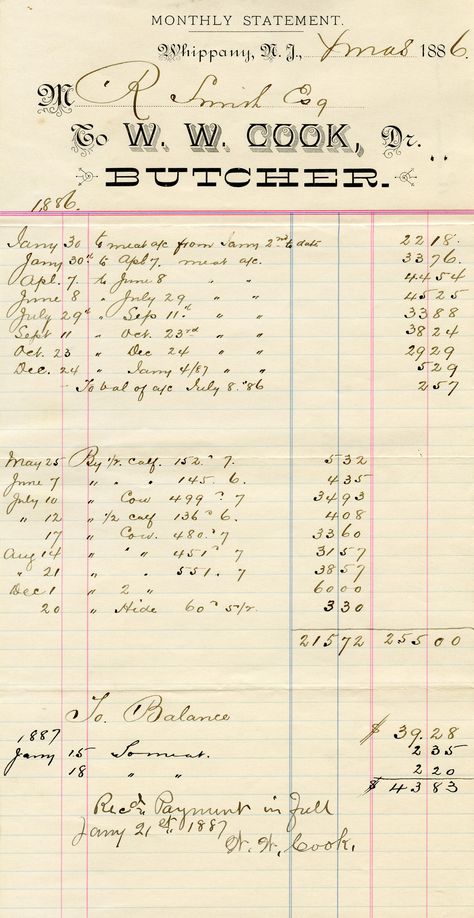 MONTHLY STATEMENT.
Whippany, N. J., Xmas 1886.
M R Smith Esq
To W. W. COOK, Dr.
BUTCHER.
1886.
Jany 30 to meat a/c from Jany 2nd to date 22 18.
Jany 30th to Apl 7. meat a/c. 33 76.
Apl. 7. to June 8 " " 44 54
June 8 " July 29 " " 45 25
July 29th " Sep 11th " " 33 88
Sept 11 " Oct. 23rd " " 38 24
Oct. 23 " Dec 24 " " 29 29
Dec. 24 " Jany 4/87 " " 5 29
To bal of a/c July 8. '86 2 57
May 25 By 1/2 calf. 152. 7. 5 32
June 7 " " " 145. 6. 4 35
July 10 " Cow 499 7 34 93
" 12 " 1/2 calf 136 6. 4 08
17 " Cow. 480. 7 33 60
Aug 14 " " 451 7 31 57
" 21 " " 551. 7 38 57
Dec 1 " 2 " 60 00
20 " Hide 60 5 1/2. 3 30
215 72 255 00
To Balance $ 39.28
1887
Jany 15 To meat. 2 35
18 " " 2 20
$ 43 83
Recd Payment in full
Jany 21st 1887
W. W. Cook.